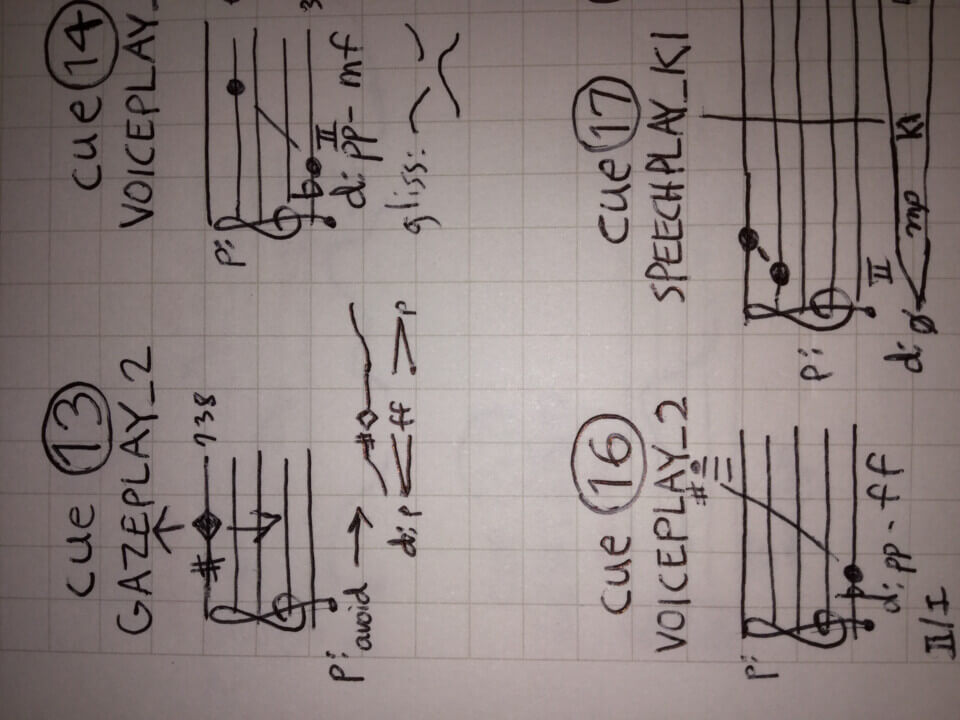 cue 13
GAZEPLAY_2
738
p: avoid
d: p ff p
cue 14
VOICEPLAY_
p:
II
d: pp - mf
gliss:
cue 16
VOICEPLAY_2
p:
d: pp - ff
II/I
cue 17
SPEECHPLAY_KI
p:
II
d: ø mp KI